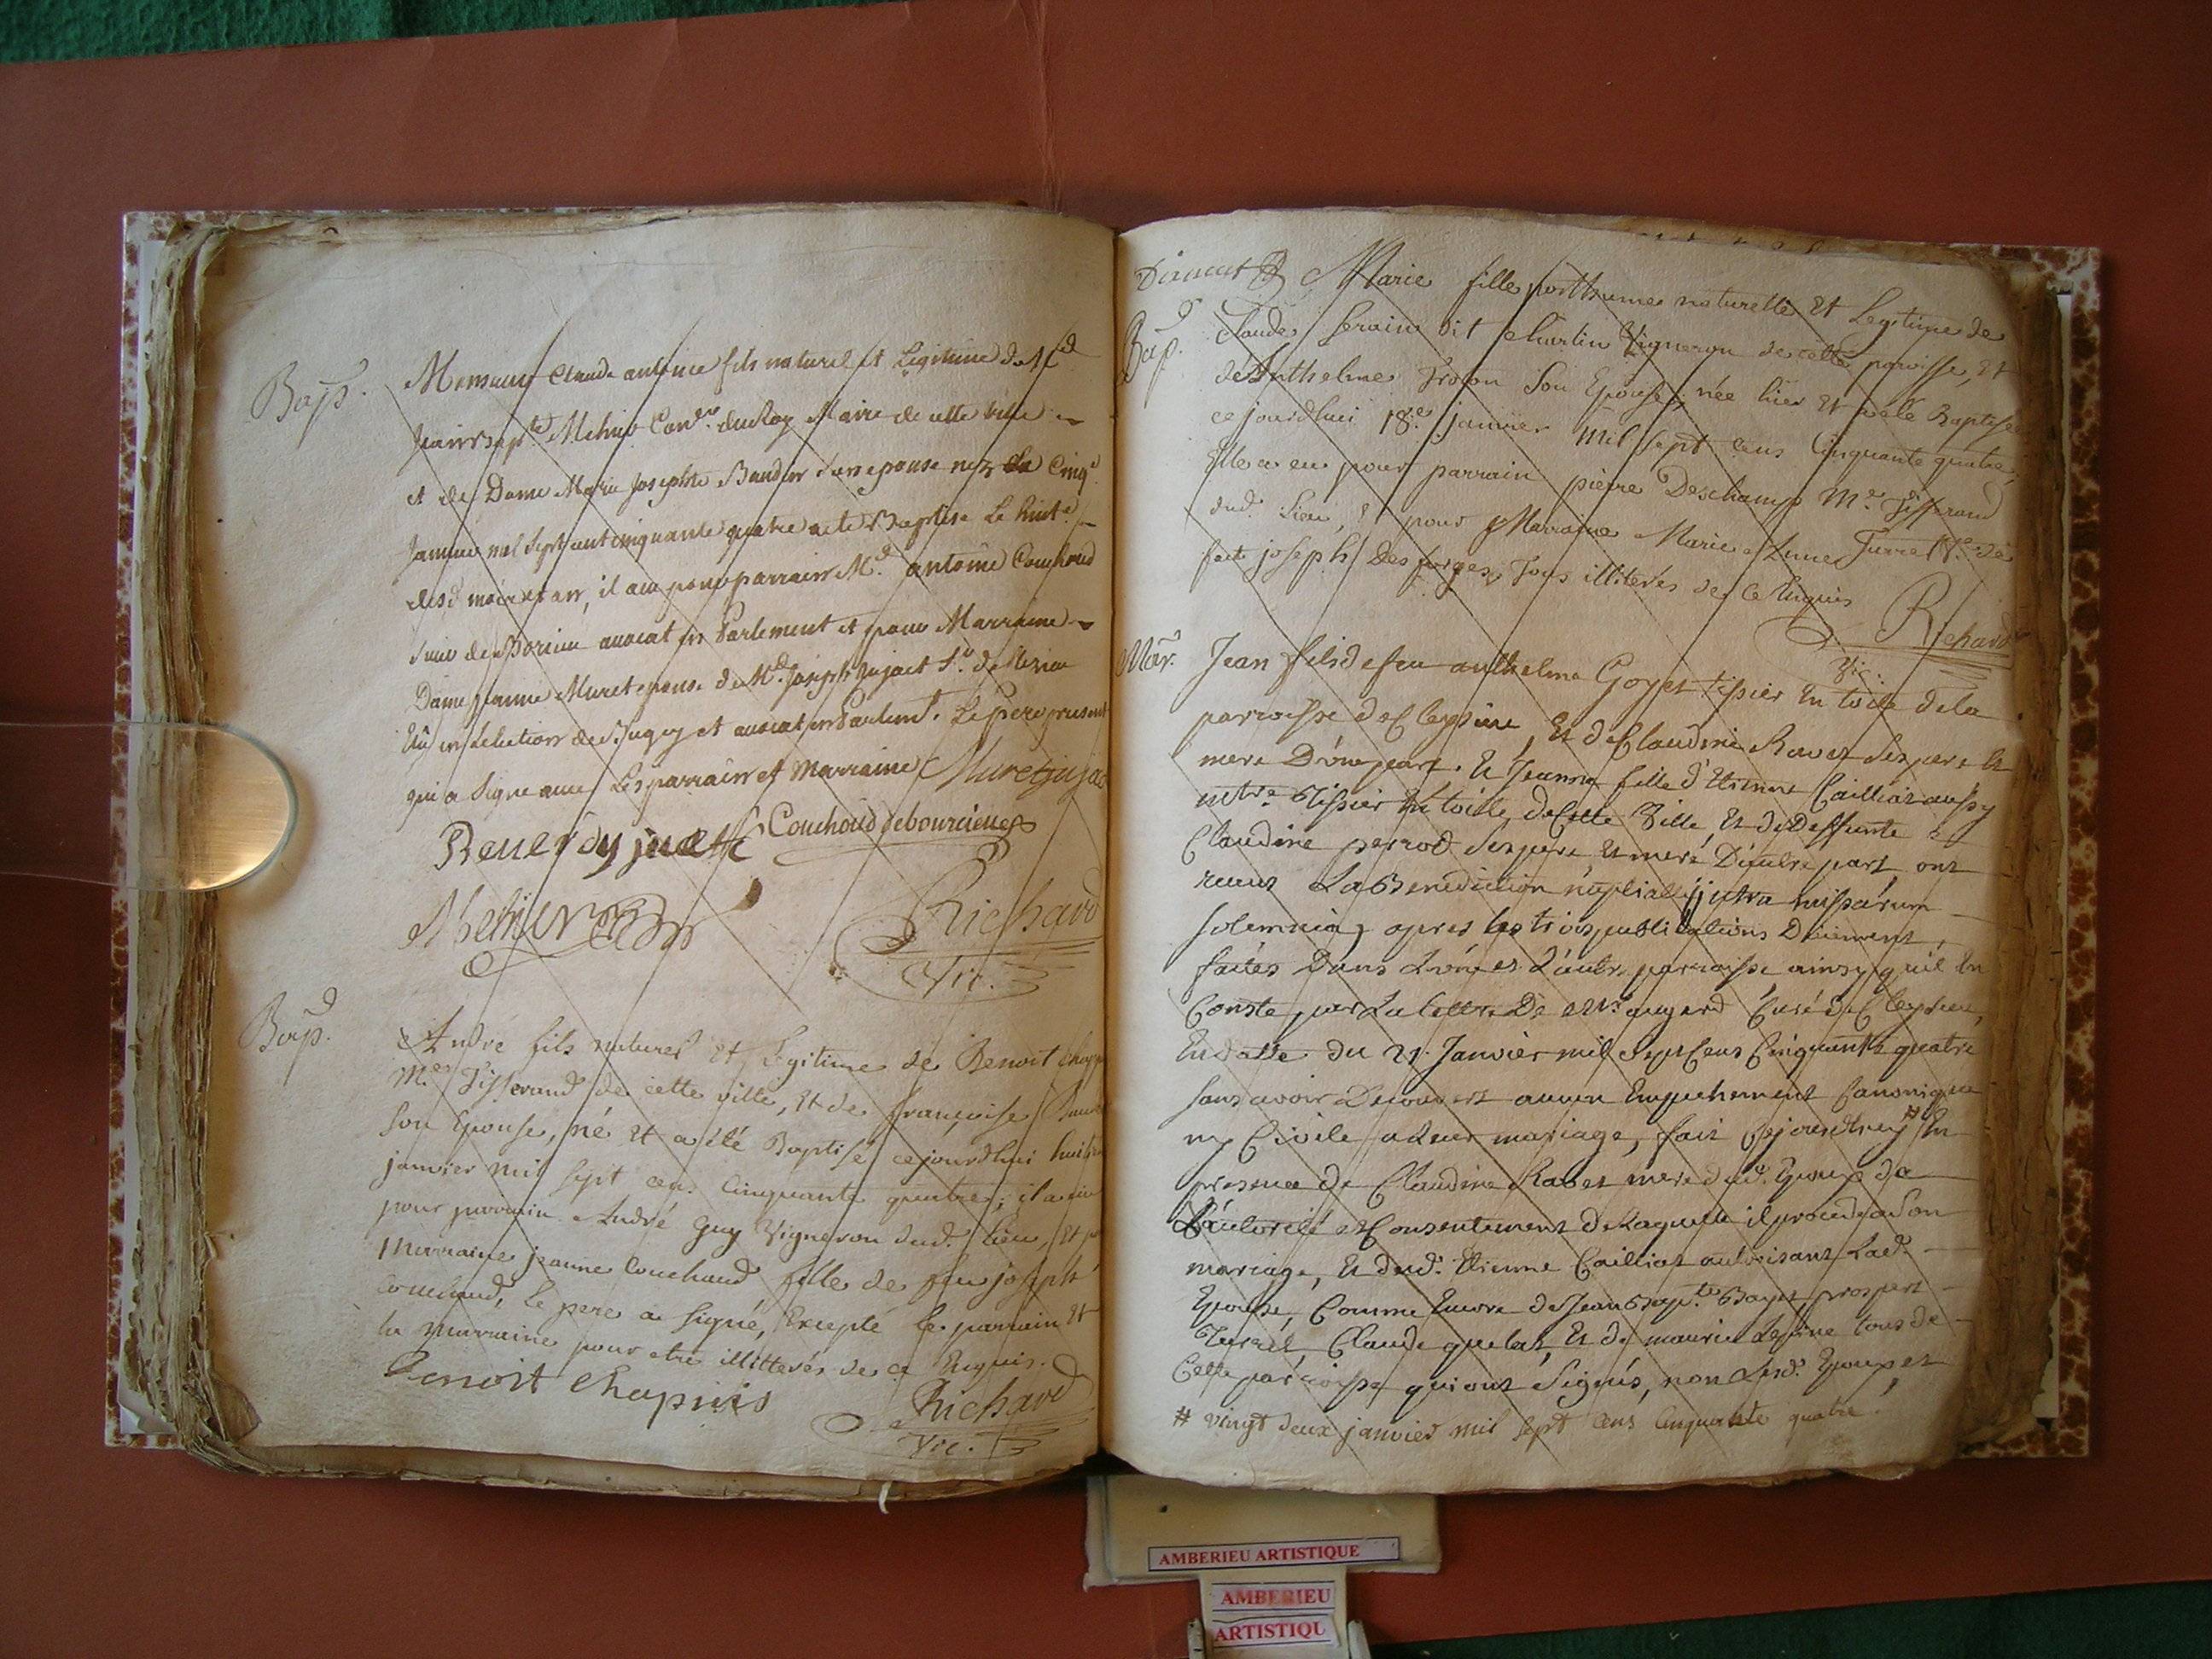 Bap.
Monsieur Claude antoine fils naturel et Legitime de Mr
Jean Bapte Cons. du Roy Maire de cette ville
et de Dame Marie Josephte Baudin son epouse nez le Cinq
Janvier mil sept cent cinquante quatre a ete Baptise Le huite
desd mois et an, il a eu pour parrain Mr antoine Couchoud
avocat en Parlement et pour Marraine
Dame Jeanne Muret epouse de Mr Joseph Jujat Sr de
Elû en Lelection de Bugey et avocat en Parlemt. Le pere present
qui a signe avec Les parrain et Marraine Muret jujat
Couchoud debourcieu
Richard
Vic.
Bap.
André fils naturel et Legitime de Benoit
Me Tisserand de cette ville, et de françoise
son Epouse, né et a été Baptisé cejourdhui
janvier mil sept cens Cinquante quatre; il a eu
pour parrain André Guy Vigneron dud. lieu, et
Marraine jeanne Couchaud fille de feu joseph
Couchaud, le pere a signé, Excepté le parrain et
la marraine pour etre illitterés de ce Enquis.
Benoit Chapuis
Richard
Vic.
Marie fille posthume naturelle et Legitime de
Bap.
Claude serain dit Charlin Vigneron de cette paroisse, et
de Anthelme son Epouse, née hier et a été Baptisée
ce jourdhui 18e janvier mil sept cens Cinquante quatre,
Elle a eu pour parrain pierre Deschamps Me Tisserand
dud. lieu, & pour Marraine Marie Anne
feu joseph Desforges, Tous illiterés de ce Enquis
Richard
Vic.
Mar.
Jean fils de feu anthelme Goyet tissier En toile dela
parroisse de Cleysieu, Et de Claudine Ravet ses pere Et
mere D'une part. Et Jeanne fille d'Etienne Cailliat aussy
Me tissier En toille de Cette Ville, Et de Deffunte
Claudine perrod ses pere Et mere D'autre part, ont
receus La Benediction nuptialle intra missarum
solemnia, apres les trois publications Duement
faites Dans L'une et L'autre parroisse ainsy qu'il En
Conste par La lettre De Mr augerd Curé de Cleysieu,
En datte du 21. Janvier mil sept Cens Cinquante quatre
sans avoir Decouvert aucun Empechement Canonique
ny Civile audit mariage, fait Cejourdhuy # En
presence de Claudine Ravet mere dud. Epoux de
L'autorité et Consentement de Laquelle il procede a son
mariage, Et dud. Etienne Cailliat autorisant Lad.
Epouse, Comme Encore de Jean Bapte Boyer, prosper
Tenret, Claude quelat, Et de maurice Lepine tous de
Cette parroisse qui ont Signés, non Lesd. Epoux et
# vingt deux janvier mil sept cens cinquante quatre
AMBERIEU ARTISTIQUE
AMBERIEU
ARTISTIQU